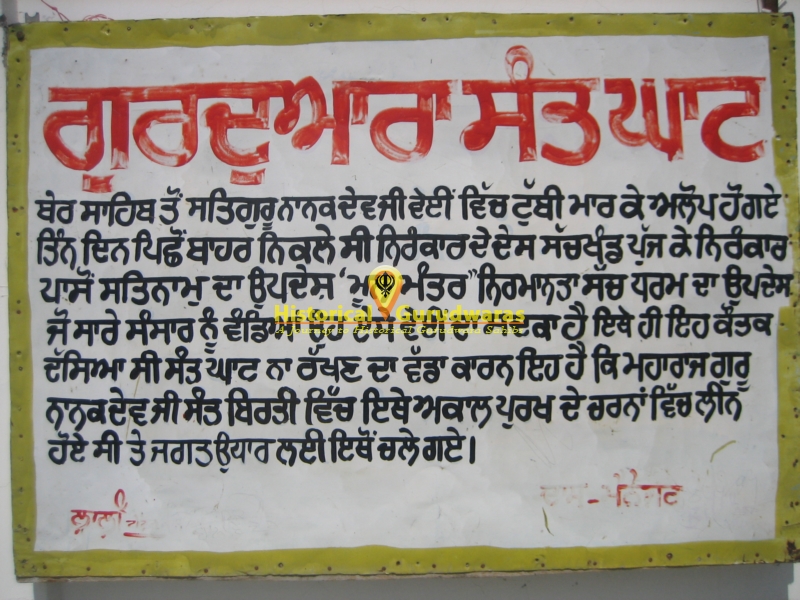 ਗੁਰਦੁਆਰਾ ਸੰਤ ਘਾਟ
ਬੇਰ ਸਾਹਿਬ ਤੋਂ ਸਤਿਗੁਰੂ ਨਾਨਕ ਦੇਵ ਜੀ ਵੇਈਂ ਵਿੱਚ ਟੁੱਬੀ ਮਾਰ ਕੇ ਅਲੋਪ ਹੋ ਗਏ
ਤਿੰਨ ਦਿਨ ਪਿਛੋਂ ਬਾਹਰ ਨਿਕਲੇ ਸੀ ਨਿਰੰਕਾਰ ਦੇ ਦੇਸ ਸੱਚਖੰਡ ਪੁੱਜ ਕੇ ਨਿਰੰਕਾਰ
ਪਾਸੋਂ ਸਤਿਨਾਮੁ ਦਾ ਉਪਦੇਸ਼ ‘ਮੂ ਮੰਤਰ” ਨਿਰਮਾਨਤਾ ਸੱਚ ਧਰਮ ਦਾ ਉਪਦੇਸ਼
ਜੋ ਸਾਰੇ ਸੰਸਾਰ ਨੂੰ ਵੰਡਿ ਹੈ ਇਥੇ ਹੀ ਇਹ ਕੌਤਕ
Historical Gurudwaras
A Journey to Historical Gurudwara Sahibs
ਦੱਸਿਆ ਸੀ ਸੰਤ ਘਾਟ ਨਾ ਰੱਖਣ ਦਾ ਵੱਡਾ ਕਾਰਨ ਇਹ ਹੈ ਕਿ ਮਹਾਰਾਜ ਗੁਰੂ
ਨਾਨਕ ਦੇਵ ਜੀ ਸੰਤ ਬਿਰਤੀ ਵਿੱਚ ਇਥੇ ਅਕਾਲ ਪੁਰਖ ਦੇ ਚਰਨਾਂ ਵਿੱਚ ਲੀਨ
ਹੋਏ ਸੀ ਤੇ ਜਗਤ ਉਧਾਰ ਲਈ ਇਥੋਂ ਚਲੇ ਗਏ।